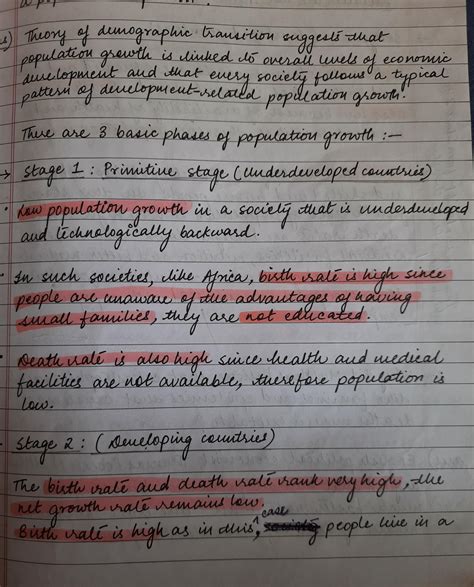 s) Theory of demographic transition suggests that
population growth is linked to overall levels of economic
development and that every society follows a typical
pattern of development-related population growth.
There are 3 basic phases of population growth :—
→ Stage 1 : Primitive stage (Underdeveloped countries)
• Low population growth in a society that is underdeveloped
and technologically backward.
• In such societies, like Africa, birth rate is high since
people are unaware of the advantages of having
small families, they are not educated.
• Death rate is also high since health and medical
facilities are not available, therefore population is
low.
• Stage 2 : (Developing countries)
The birth rate and death rate rank very high, the
net growth rate remains low.
Birth rate is high as in this, ^case society people live in a